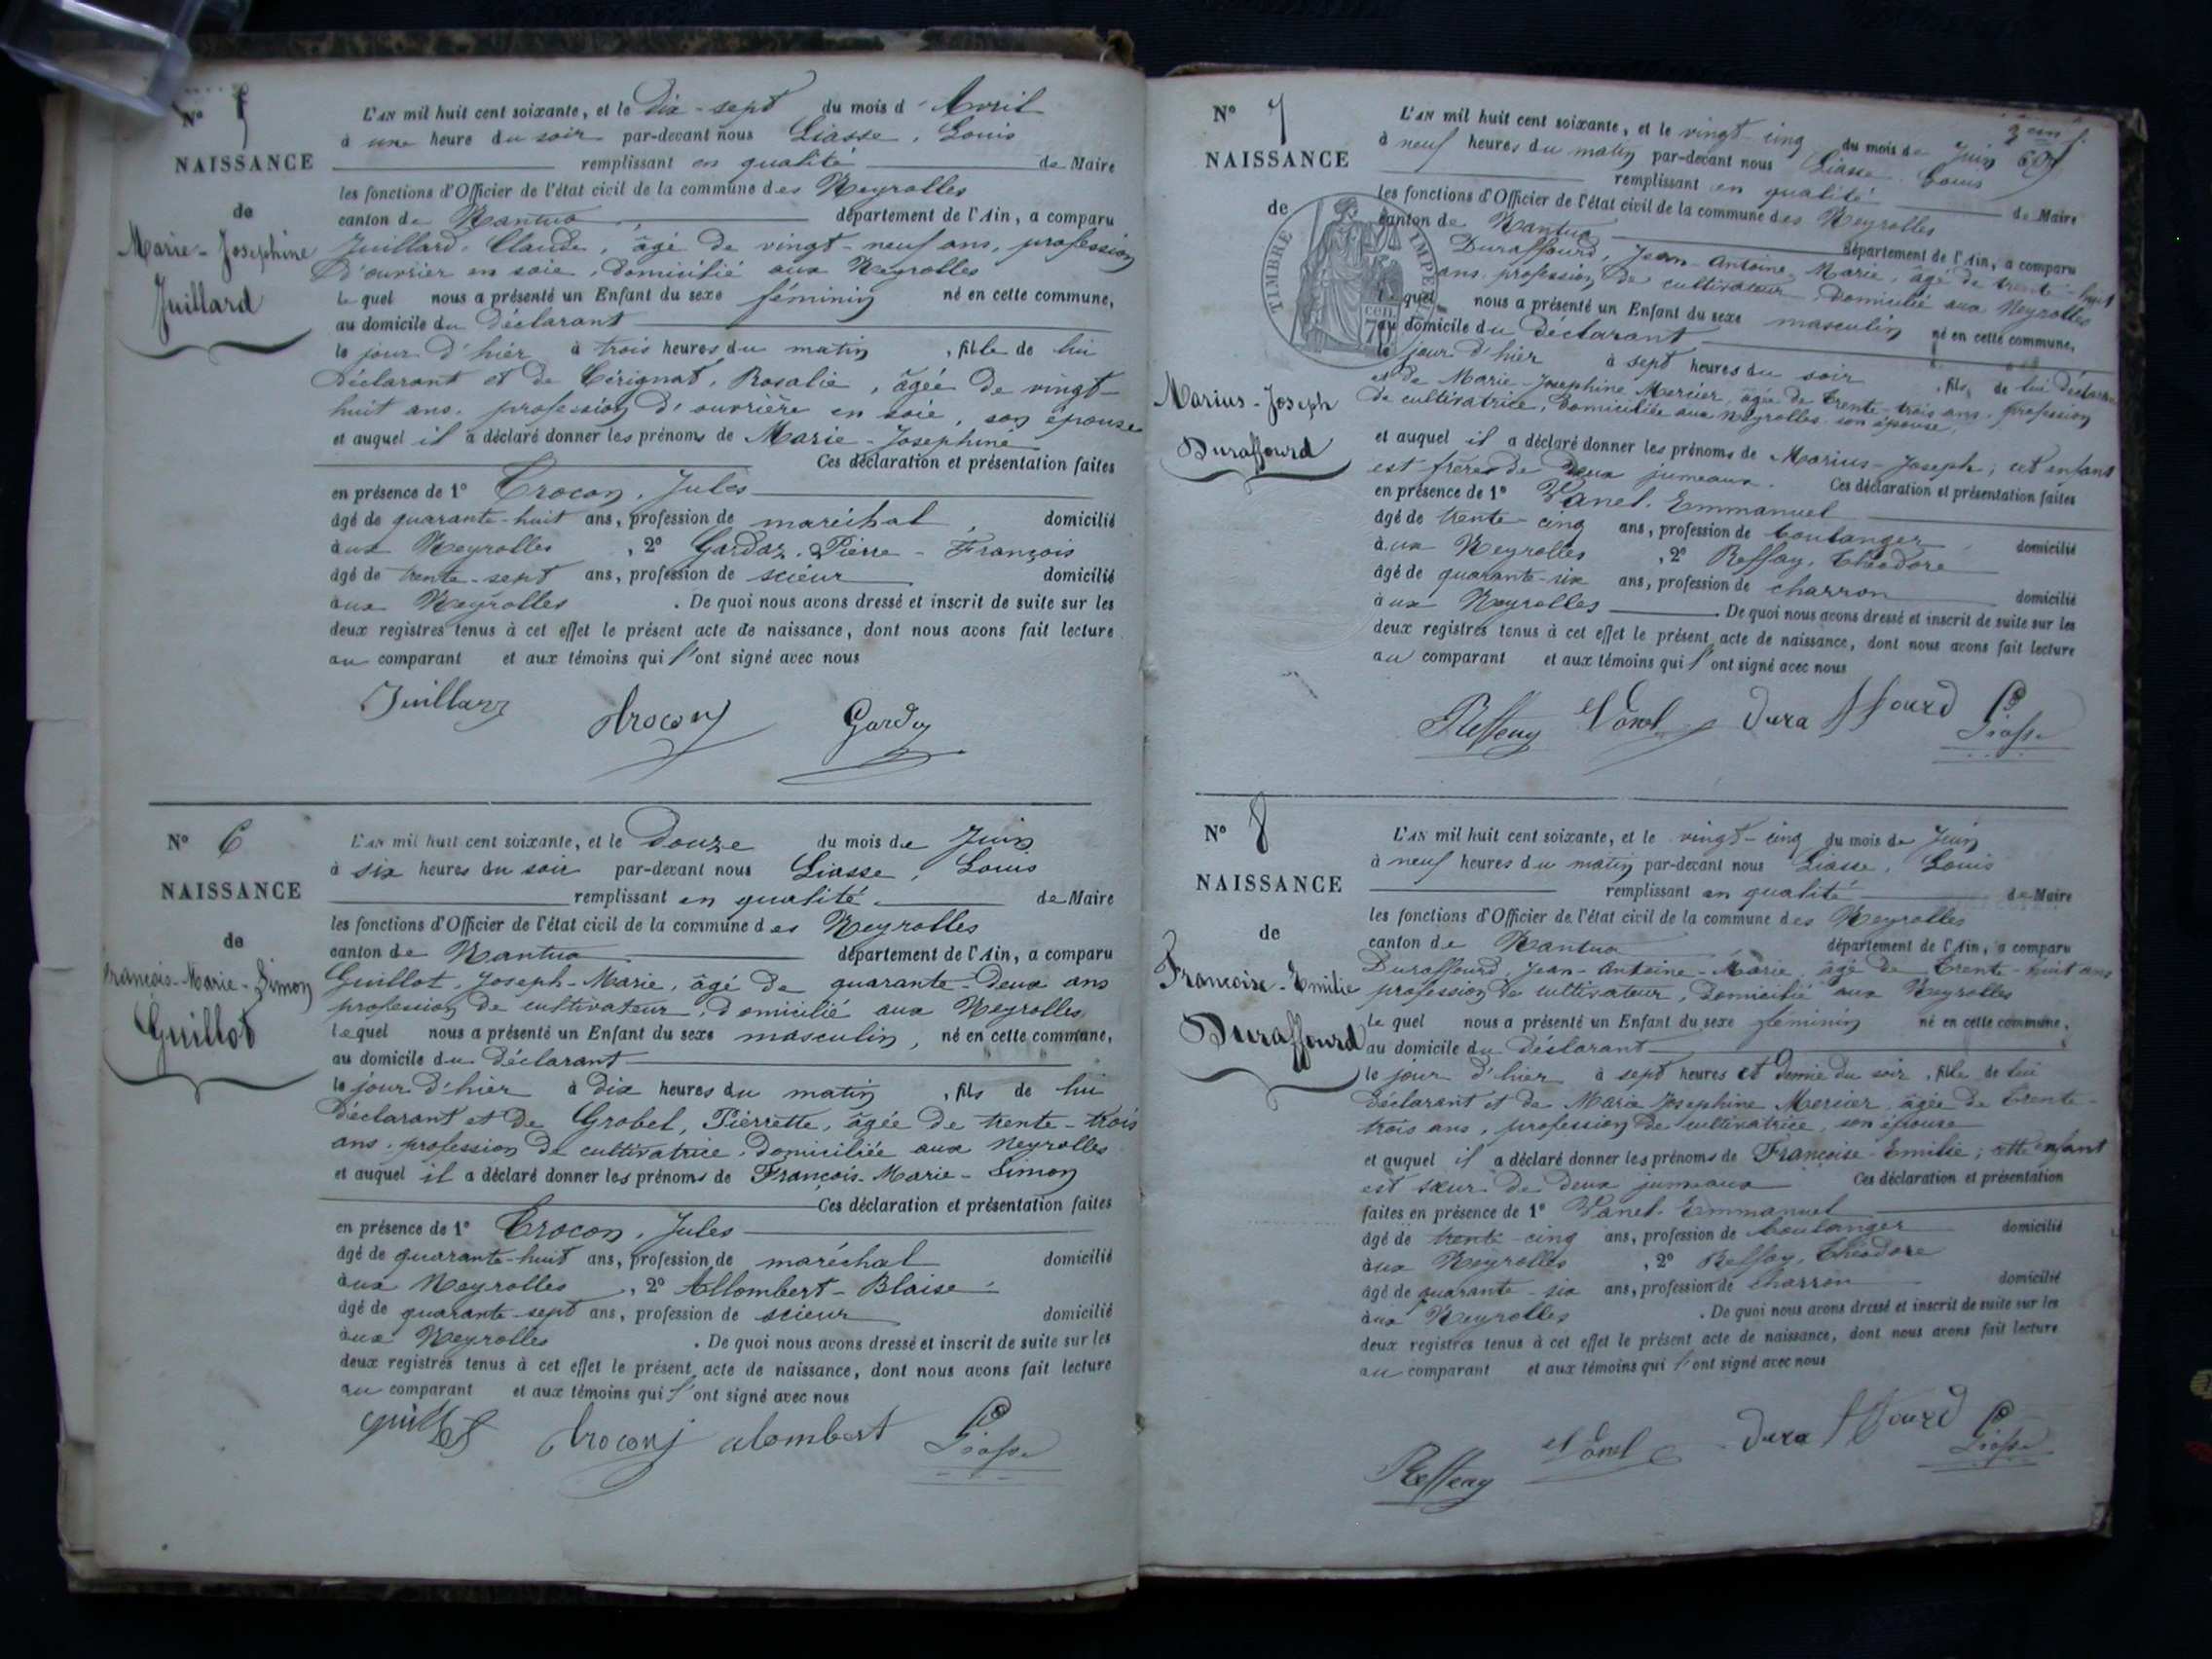 N° 5
NAISSANCE
de
Marie-Josephine
Juillard
L'AN mil huit cent soixante, et le dix-sept du mois d'Avril
à une heure du soir par-devant nous Liasse, Louis
remplissant en qualité de Maire
les fonctions d'Officier de l'état civil de la commune des Neyrolles
canton de Nantua département de l'Ain, a comparu
Juillard, Claude, âgé de vingt-neuf ans, profession
d'ouvrier en soie, domicilié aux Neyrolles
lequel nous a présenté un Enfant du sexe féminin né en cette commune,
au domicile du déclarant
le jour d'hier à trois heures du matin, fille de lui
déclarant et de Cérignat, Rosalie, âgée de vingt-
huit ans, profession d'ouvrière en soie, son épouse
et auquel il a déclaré donner les prénoms de Marie-Josephine
Ces déclaration et présentation faites
en présence de 1° Crocon, Jules
âgé de quarante-huit ans, profession de maréchal, domicilié
aux Neyrolles, 2° Gardaz, Pierre-François
âgé de trente-sept ans, profession de scieur domicilié
aux Neyrolles. De quoi nous avons dressé et inscrit de suite sur les
deux registres tenus à cet effet le présent acte de naissance, dont nous avons fait lecture
au comparant et aux témoins qui l'ont signé avec nous
Juillard Crocon Garday
N° 6
NAISSANCE
de
François-Marie-Simon
Guillot
L'AN mil huit cent soixante, et le douze du mois de Juin
à six heures du soir par-devant nous Liasse, Louis
remplissant en qualité de Maire
les fonctions d'Officier de l'état civil de la commune des Neyrolles
canton de Nantua département de l'Ain, a comparu
Guillot, Joseph-Marie, âgé de quarante-deux ans
profession de cultivateur, domicilié aux Neyrolles
lequel nous a présenté un Enfant du sexe masculin, né en cette commune,
au domicile du déclarant
le jour d'hier à dix heures du matin, fils de lui
déclarant et de Grobel, Pierrette, âgée de trente-trois
ans, profession de cultivatrice, domiciliée aux Neyrolles
et auquel il a déclaré donner les prénoms de François-Marie-Simon
Ces déclaration et présentation faites
en présence de 1° Crocon, Jules
âgé de quarante-huit ans, profession de maréchal domicilié
aux Neyrolles, 2° Allombert-Blaise
âgé de quarante-sept ans, profession de scieur domicilié
aux Neyrolles. De quoi nous avons dressé et inscrit de suite sur les
deux registres tenus à cet effet le présent acte de naissance, dont nous avons fait lecture
au comparant et aux témoins qui l'ont signé avec nous
Guillot Crocon alombert Liasse
N° 7
NAISSANCE
de
TIMBRE IMPE
Marius-Joseph
Duraffourd
L'AN mil huit cent soixante, et le vingt-cinq du mois de Juin
à neuf heures du matin par-devant nous Liasse Louis
remplissant en qualité de Maire
les fonctions d'Officier de l'état civil de la commune des Neyrolles
canton de Nantua département de l'Ain, a comparu
Duraffourd, Jean-Antoine-Marie, âgé de trente-huit
ans, profession de cultivateur, domicilié aux Neyrolles
lequel nous a présenté un Enfant du sexe masculin né en cette commune,
au domicile du déclarant
le jour d'hier à sept heures du soir, fils de lui déclarant
et de Marie-Josephine Mercier, âgée de trente-trois ans, profession
de cultivatrice, domiciliée aux Neyrolles son épouse
et auquel il a déclaré donner les prénoms de Marius-Joseph; cet enfant
est frère de deux jumeaux. Ces déclaration et présentation faites
en présence de 1° Vanel, Emmanuel
âgé de trente-cinq ans, profession de boulanger, domicilié
aux Neyrolles, 2° Reffay, Théodore
âgé de quarante-six ans, profession de charron domicilié
aux Neyrolles. De quoi nous avons dressé et inscrit de suite sur les
deux registres tenus à cet effet le présent acte de naissance, dont nous avons fait lecture
au comparant et aux témoins qui l'ont signé avec nous
Reffay Vanel Duraffourd Liasse
N° 8
NAISSANCE
de
Françoise-Emilie
Duraffourd
L'AN mil huit cent soixante, et le vingt-cinq du mois de Juin
à neuf heures du matin par-devant nous Liasse, Louis
remplissant en qualité de Maire
les fonctions d'Officier de l'état civil de la commune des Neyrolles
canton de Nantua département de l'Ain, a comparu
Duraffourd, Jean-Antoine-Marie, âgé de trente-huit ans
profession de cultivateur, domicilié aux Neyrolles
lequel nous a présenté un Enfant du sexe féminin né en cette commune,
au domicile du déclarant
le jour d'hier à sept heures et demie du soir, fille de lui
déclarant et de Marie Josephine Mercier, âgée de trente-
trois ans, profession de cultivatrice, son épouse
et auquel il a déclaré donner les prénoms de Françoise-Emilie; cette enfant
est sœur de deux jumeaux Ces déclaration et présentation
faites en présence de 1° Vanel, Emmanuel
âgé de trente-cinq ans, profession de boulanger domicilié
aux Neyrolles, 2° Reffay, Théodore
âgé de quarante-six ans, profession de charron domicilié
aux Neyrolles. De quoi nous avons dressé et inscrit de suite sur les
deux registres tenus à cet effet le présent acte de naissance, dont nous avons fait lecture
au comparant et aux témoins qui l'ont signé avec nous
Reffay Vanel Duraffourd Liasse